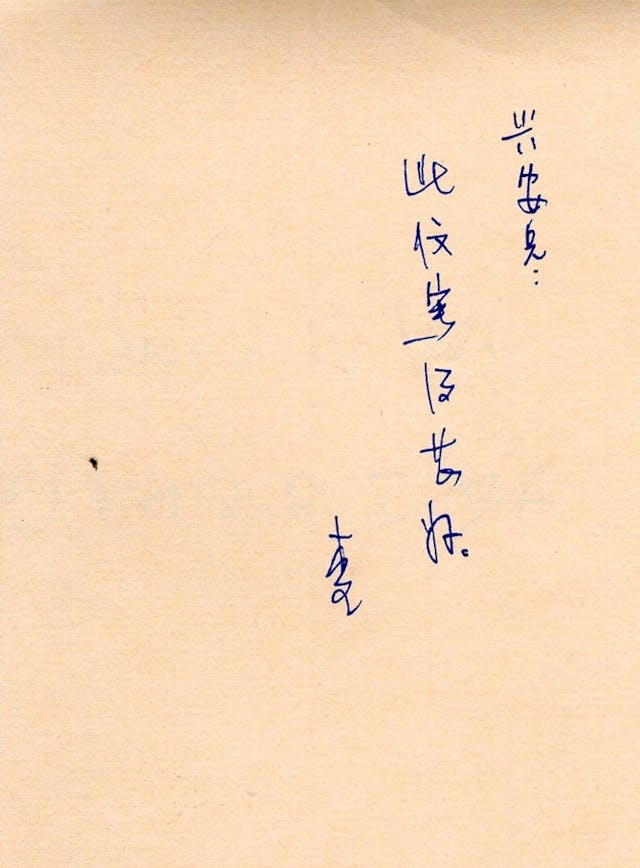 兴安兄：
此文写得甚好。